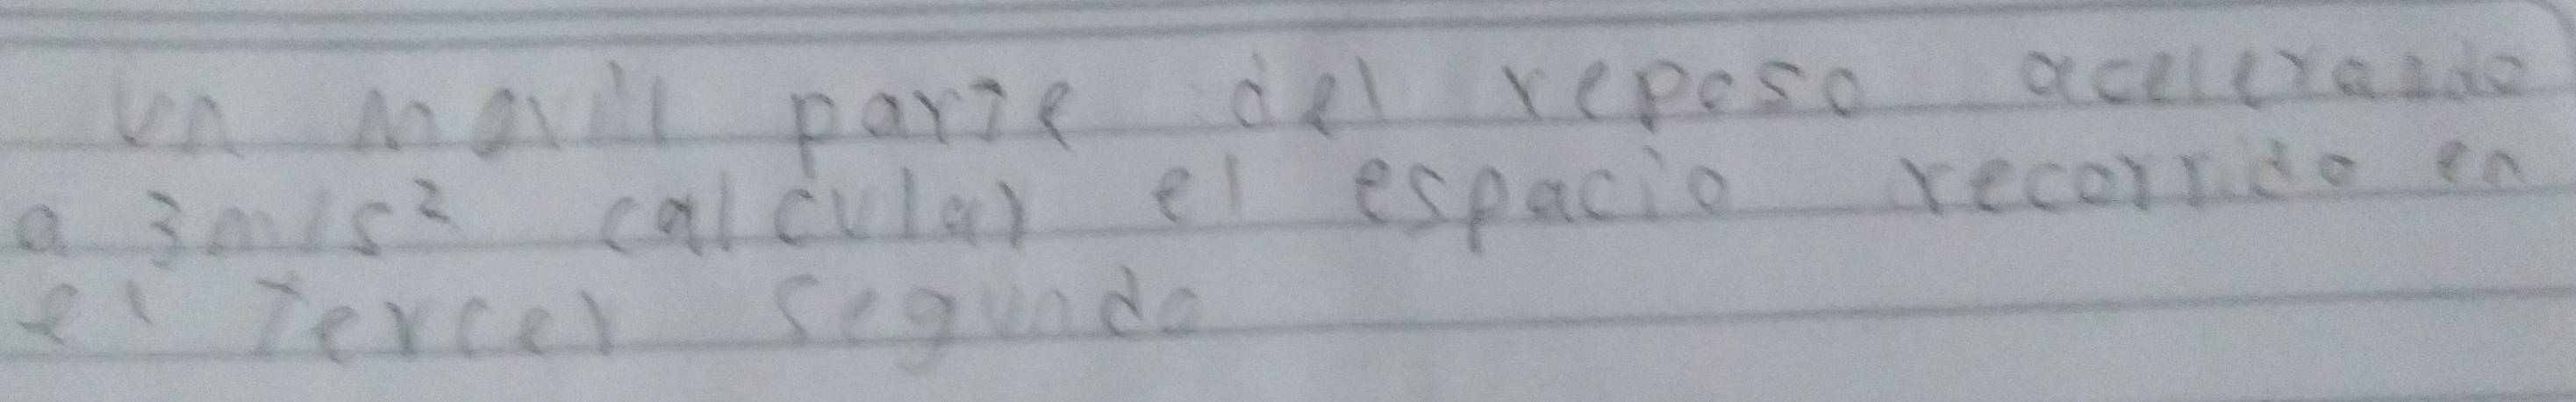 un movil parte del reposo acelerando
a 3m/s² calcular el espacio recorrido en
el Tercer segundo